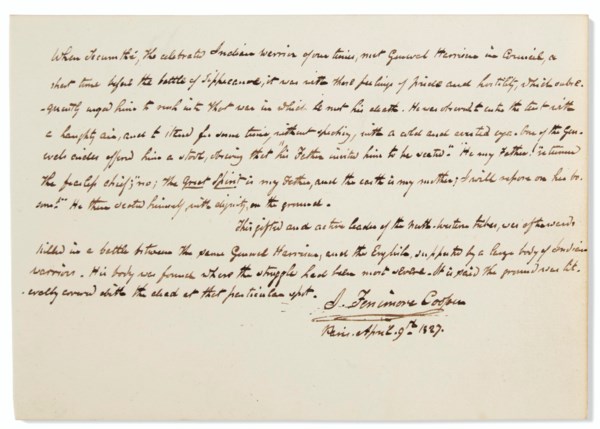 When Tecumthé, the celebrated Indian warrior of our times, met General Harrison in Council, a
short time before the battle of Tippecanoe, it was with those feelings of pride and hostility, which subse-
-quently urged him to rush into that war in which he met his death. He was observed to enter the tent with
a haughty air, and to stand for some time without speaking, with a cold and averted eye. One of the Gen-
-erals aides offered him a stool, observing that "his Father invited him to be seated." "He my Father!" returned
the chief; "no; the Great Spirit is my Father, and the earth is my mother; I will repose on her bo-
som!" He then seated himself, with dignity, on the ground.
This gifted and active leader of the North-western tribes, was afterwards
killed in a battle between the same General Harrison, and the English, supported by a large body of Indian
warriors. His body was found where the struggle had been most severe. It is said the ground was lit-
-erally covered with the dead at that particular spot.
J. Fenimore Cooper
Paris. April. 9th 1827.